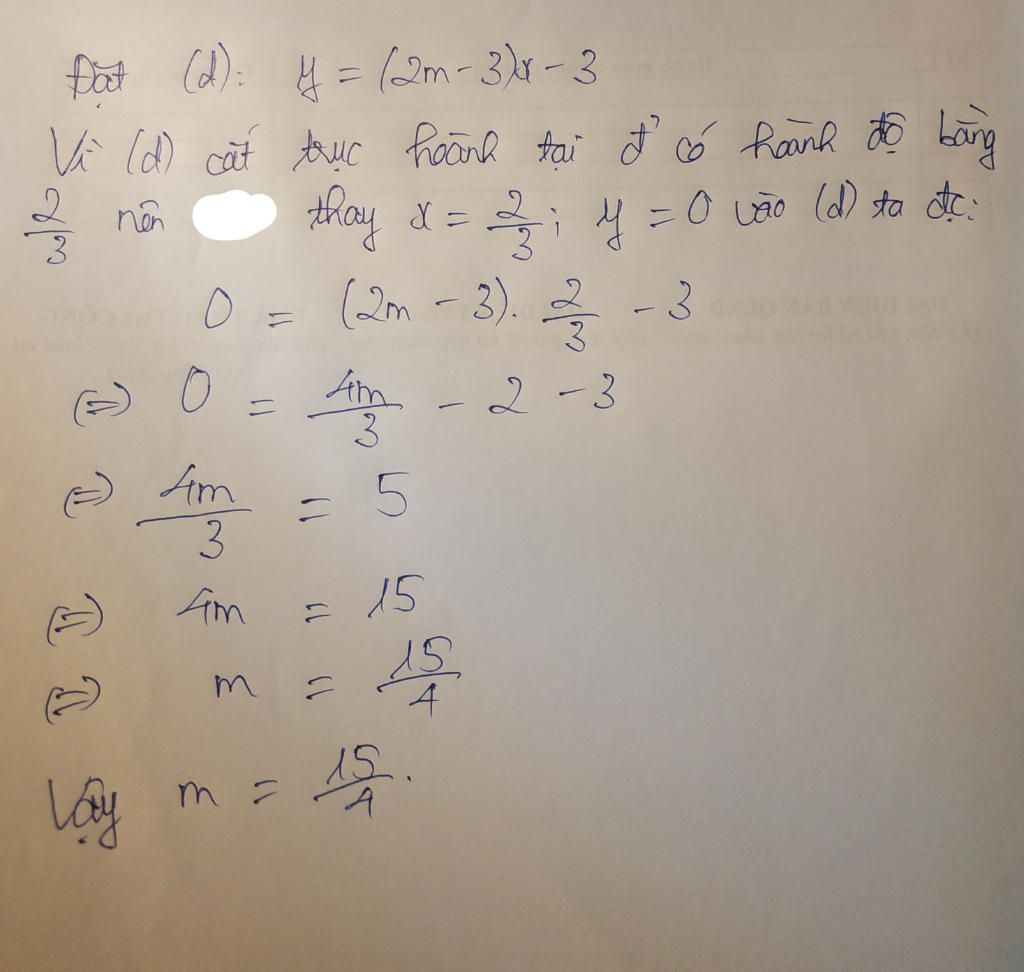 Đặt (d): y = (2m - 3)x - 3
Vì (d) cắt trục hoành tại đ' có hoành độ bằng
2/3 nên thay x = 2/3; y = 0 vào (d) ta đc:
0 = (2m - 3). 2/3 - 3
(=) 0 = 4m/3 - 2 - 3
(=) 4m/3 = 5
(=) 4m = 15
(=) m = 15/4
Vậy m = 15/4.